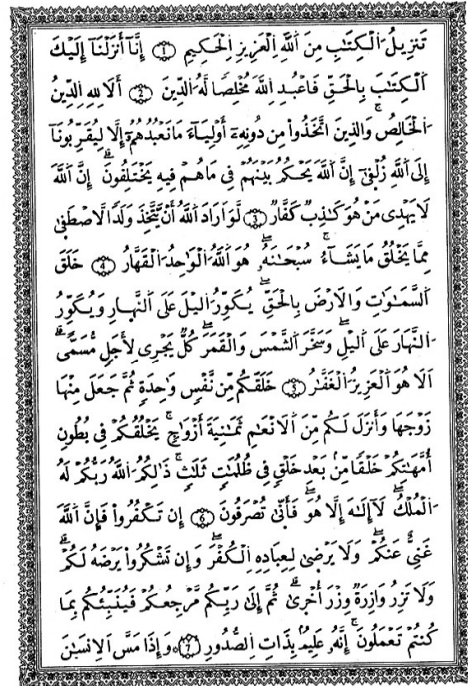 تَنزِيلُ الْكِتَٰبِ مِنَ اللَّهِ الْعَزِيزِ الْحَكِيمِ ۝١ إِنَّآ أَنزَلْنَآ إِلَيْكَ
الْكِتَٰبَ بِالْحَقِّ فَاعْبُدِ اللَّهَ مُخْلِصًا لَّهُ الدِّينَ ۝٢ أَلَا لِلَّهِ الدِّينُ
الْخَالِصُ وَالَّذِينَ اتَّخَذُوا مِن دُونِهِۦٓ أَوْلِيَآءَ مَا نَعْبُدُهُمْ إِلَّا لِيُقَرِّبُونَآ
إِلَى اللَّهِ زُلْفَىٰٓ إِنَّ اللَّهَ يَحْكُمُ بَيْنَهُمْ فِى مَا هُمْ فِيهِ يَخْتَلِفُونَ ۗ إِنَّ اللَّهَ
لَا يَهْدِى مَنْ هُوَ كَٰذِبٌ كَفَّارٌ ۝٣ لَّوْ أَرَادَ اللَّهُ أَن يَتَّخِذَ وَلَدًا لَّاصْطَفَىٰ
مِمَّا يَخْلُقُ مَا يَشَآءُ ۚ سُبْحَٰنَهُۥ ۖ هُوَ اللَّهُ الْوَٰحِدُ الْقَهَّارُ ۝٤ خَلَقَ
السَّمَٰوَٰتِ وَالْأَرْضَ بِالْحَقِّ ۖ يُكَوِّرُ الَّيْلَ عَلَى النَّهَارِ وَيُكَوِّرُ
النَّهَارَ عَلَى الَّيْلِ ۖ وَسَخَّرَ الشَّمْسَ وَالْقَمَرَ ۖ كُلٌّ يَجْرِى لِأَجَلٍ مُّسَمًّى ۗ
أَلَا هُوَ الْعَزِيزُ الْغَفَّٰرُ ۝٥ خَلَقَكُم مِّن نَّفْسٍ وَٰحِدَةٍ ثُمَّ جَعَلَ مِنْهَا
زَوْجَهَا وَأَنزَلَ لَكُم مِّنَ الْأَنْعَٰمِ ثَمَٰنِيَةَ أَزْوَٰجٍ ۚ يَخْلُقُكُمْ فِى بُطُونِ
أُمَّهَٰتِكُمْ خَلْقًا مِّنۢ بَعْدِ خَلْقٍ فِى ظُلُمَٰتٍ ثَلَٰثٍ ۚ ذَٰلِكُمُ اللَّهُ رَبُّكُمْ لَهُ
الْمُلْكُ ۖ لَآ إِلَٰهَ إِلَّا هُوَ ۖ فَأَنَّىٰ تُصْرَفُونَ ۝٦ إِن تَكْفُرُوا فَإِنَّ اللَّهَ
غَنِىٌّ عَنكُمْ ۖ وَلَا يَرْضَىٰ لِعِبَادِهِ الْكُفْرَ ۖ وَإِن تَشْكُرُوا يَرْضَهُ لَكُمْ ۗ
وَلَا تَزِرُ وَازِرَةٌ وِزْرَ أُخْرَىٰ ۗ ثُمَّ إِلَىٰ رَبِّكُم مَّرْجِعُكُمْ فَيُنَبِّئُكُم بِمَا
كُنتُمْ تَعْمَلُونَ ۚ إِنَّهُۥ عَلِيمٌۢ بِذَاتِ الصُّدُورِ ۝٧ وَإِذَا مَسَّ الْإِنسَٰنَ